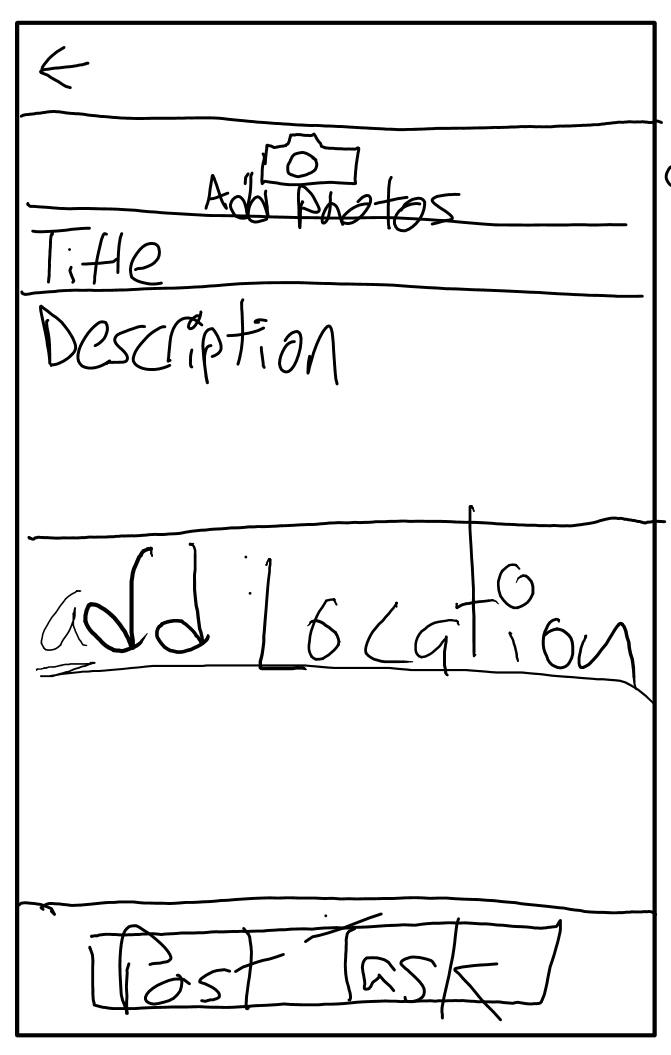 Add Photos
Title
Description
add Location
Post Task